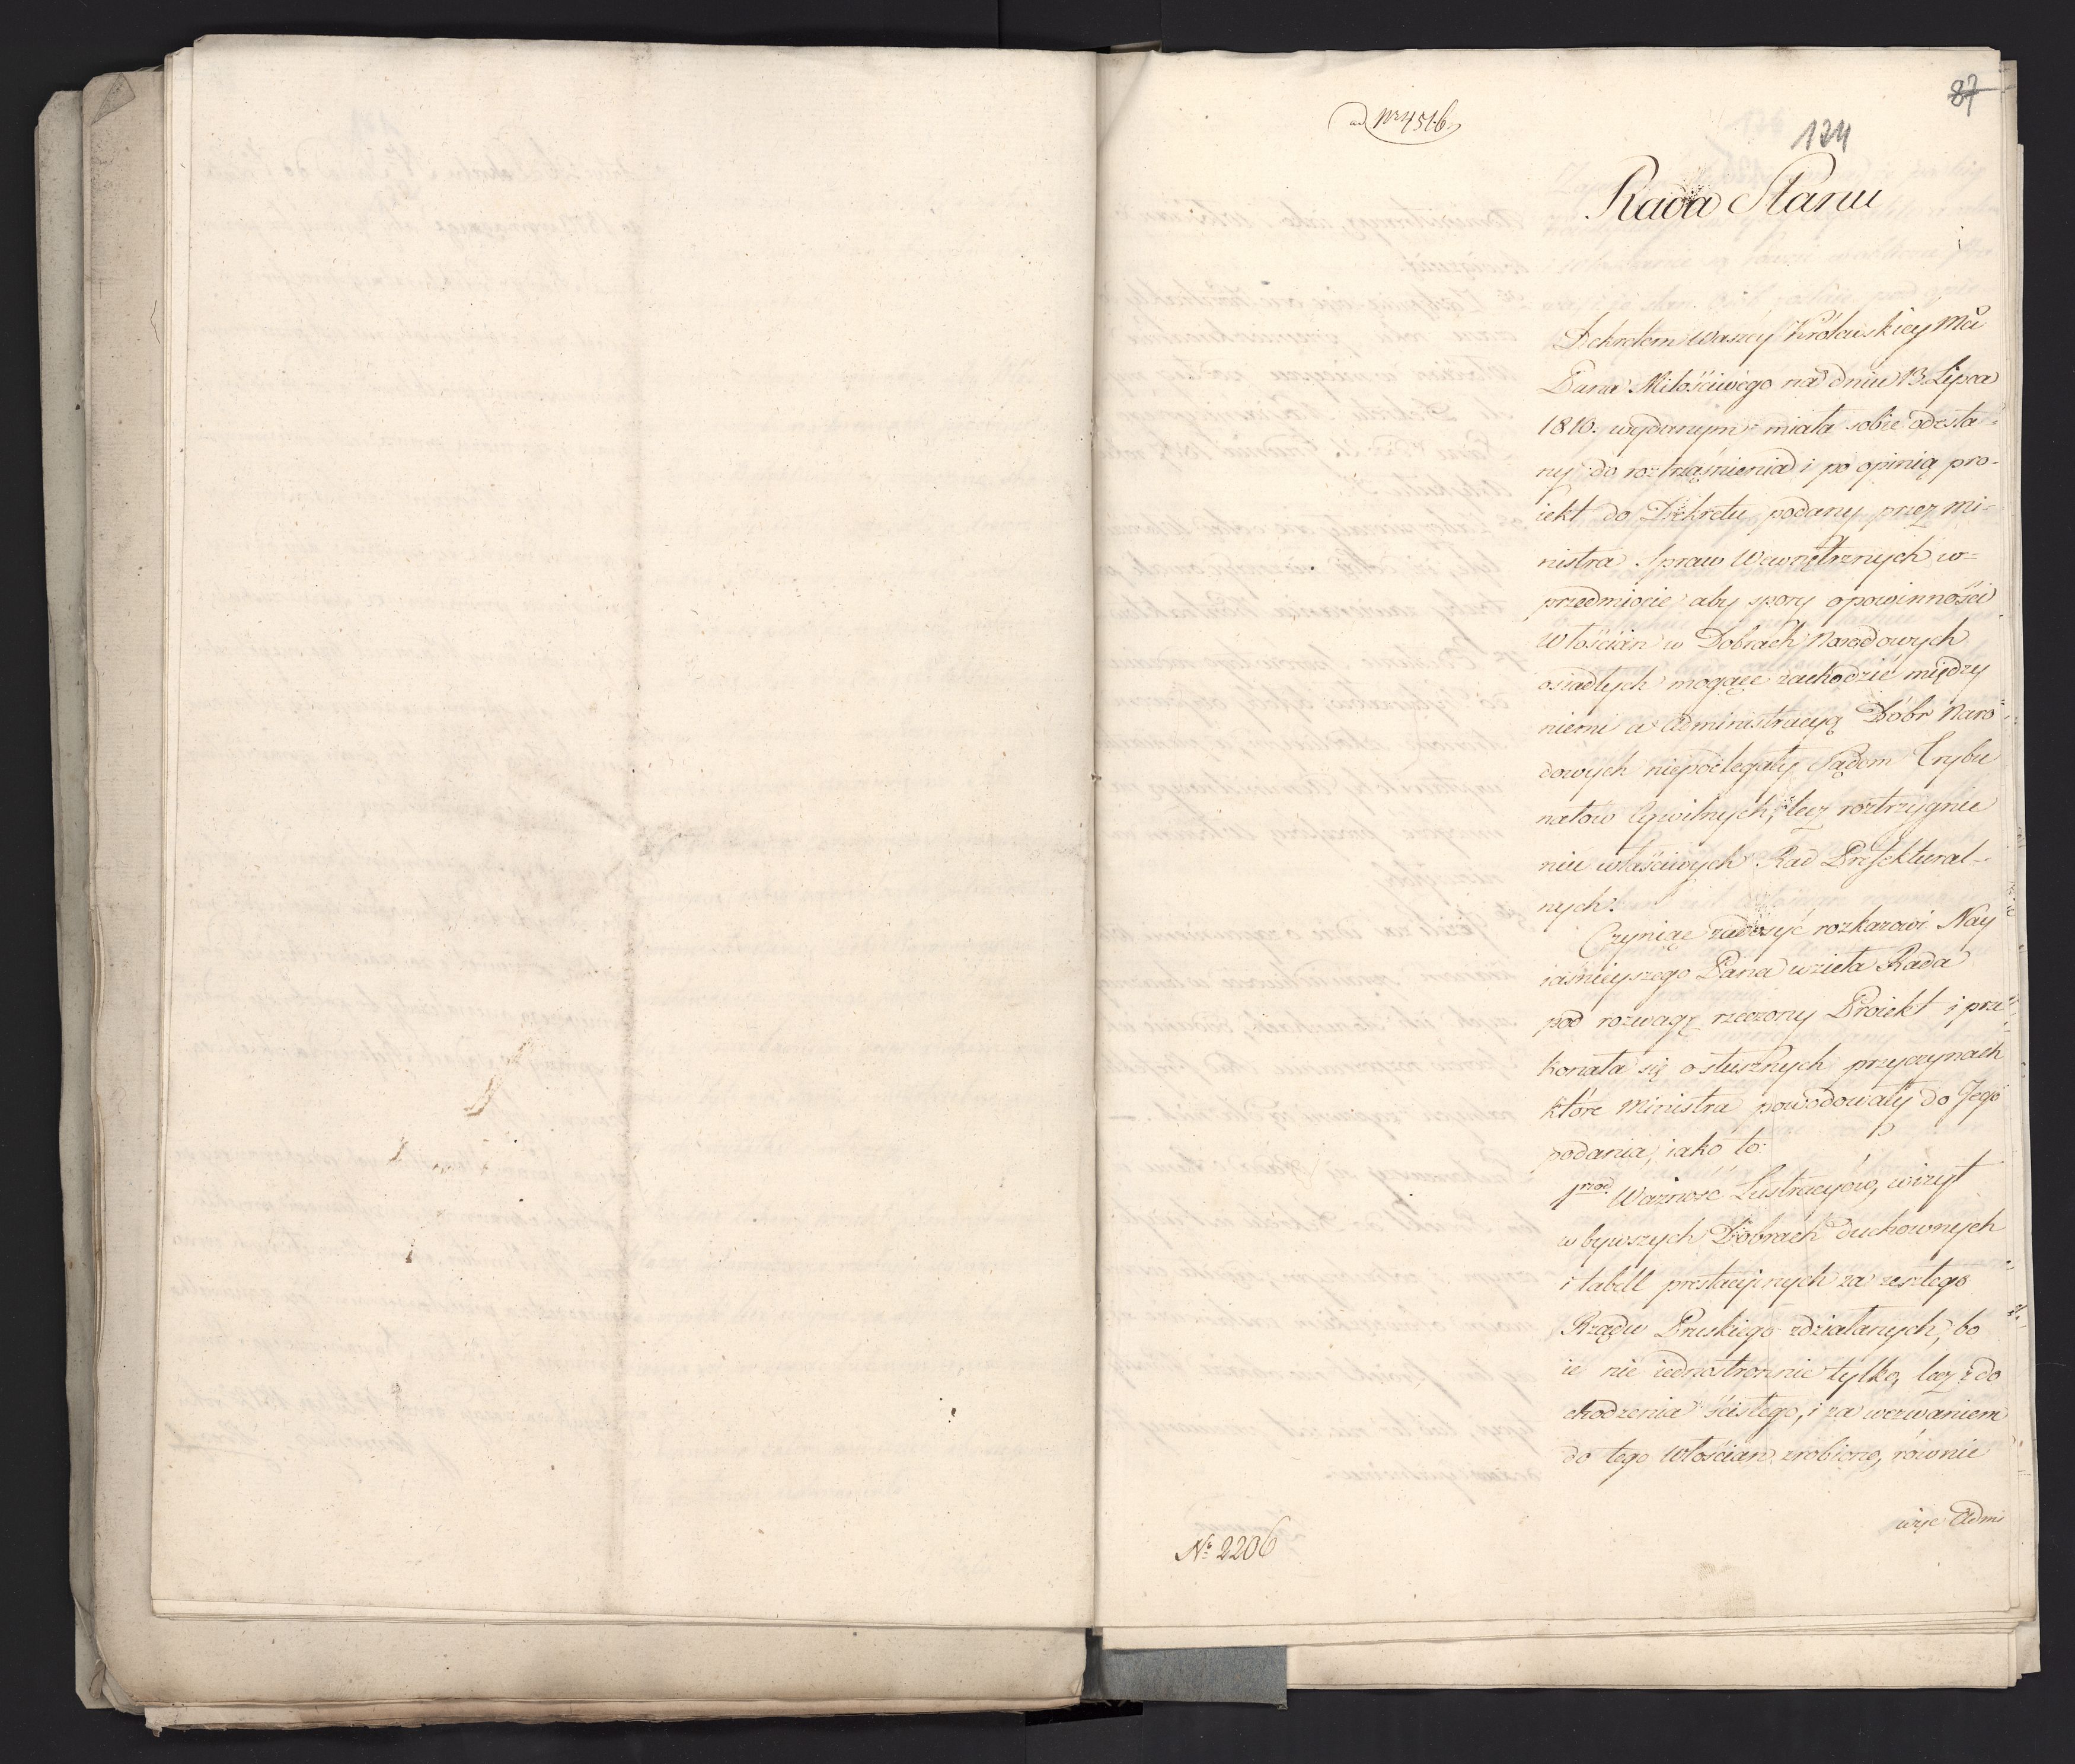 87
ad Nr 4516
124
Rada Stanu
Dekretem Waszey Królewskiey Mci
Pana Miłościwego na dniu 13. Lipca
1810. wydanym miała sobie odesła-
ny do roztrząśnienia i po opinią pro-
iekt do Dekretu podany przez Mi-
nistra Spraw Wewnętrznych w-
przedmiocie aby spory o powinności
Włościan w Dobrach Narodowych
osiadłych mogące zachodzić między
niemi a Administracyą Dóbr Naro
dowych niepodlegały Sądom Trybu
nałow Cywilnych, lecz roztrzygnie
niu właściwych Rad Prefektural-
nych.
Czyniąc zadosyć rozkazowi Nay
iaśnieyszego Pana wzieła Rada
pod rozwagę rzeczony Proiekt i prze
konała się o słusznych przyczynach
które Ministra powodowały do Jego
podania, iako to:
1mo Ważność Lustracyów, wizyt
w bywszych Dobrach Duchownych
i tabell prestacyinych za zeszłego
Rządu Pruskiego zdziałanych, bo
ie nie iednostronnie tylko, lecz z do
chodzenia ścisłego, i za wezwaniem
do tego Włościan zrobiono, równie
więc Admi
No 2206